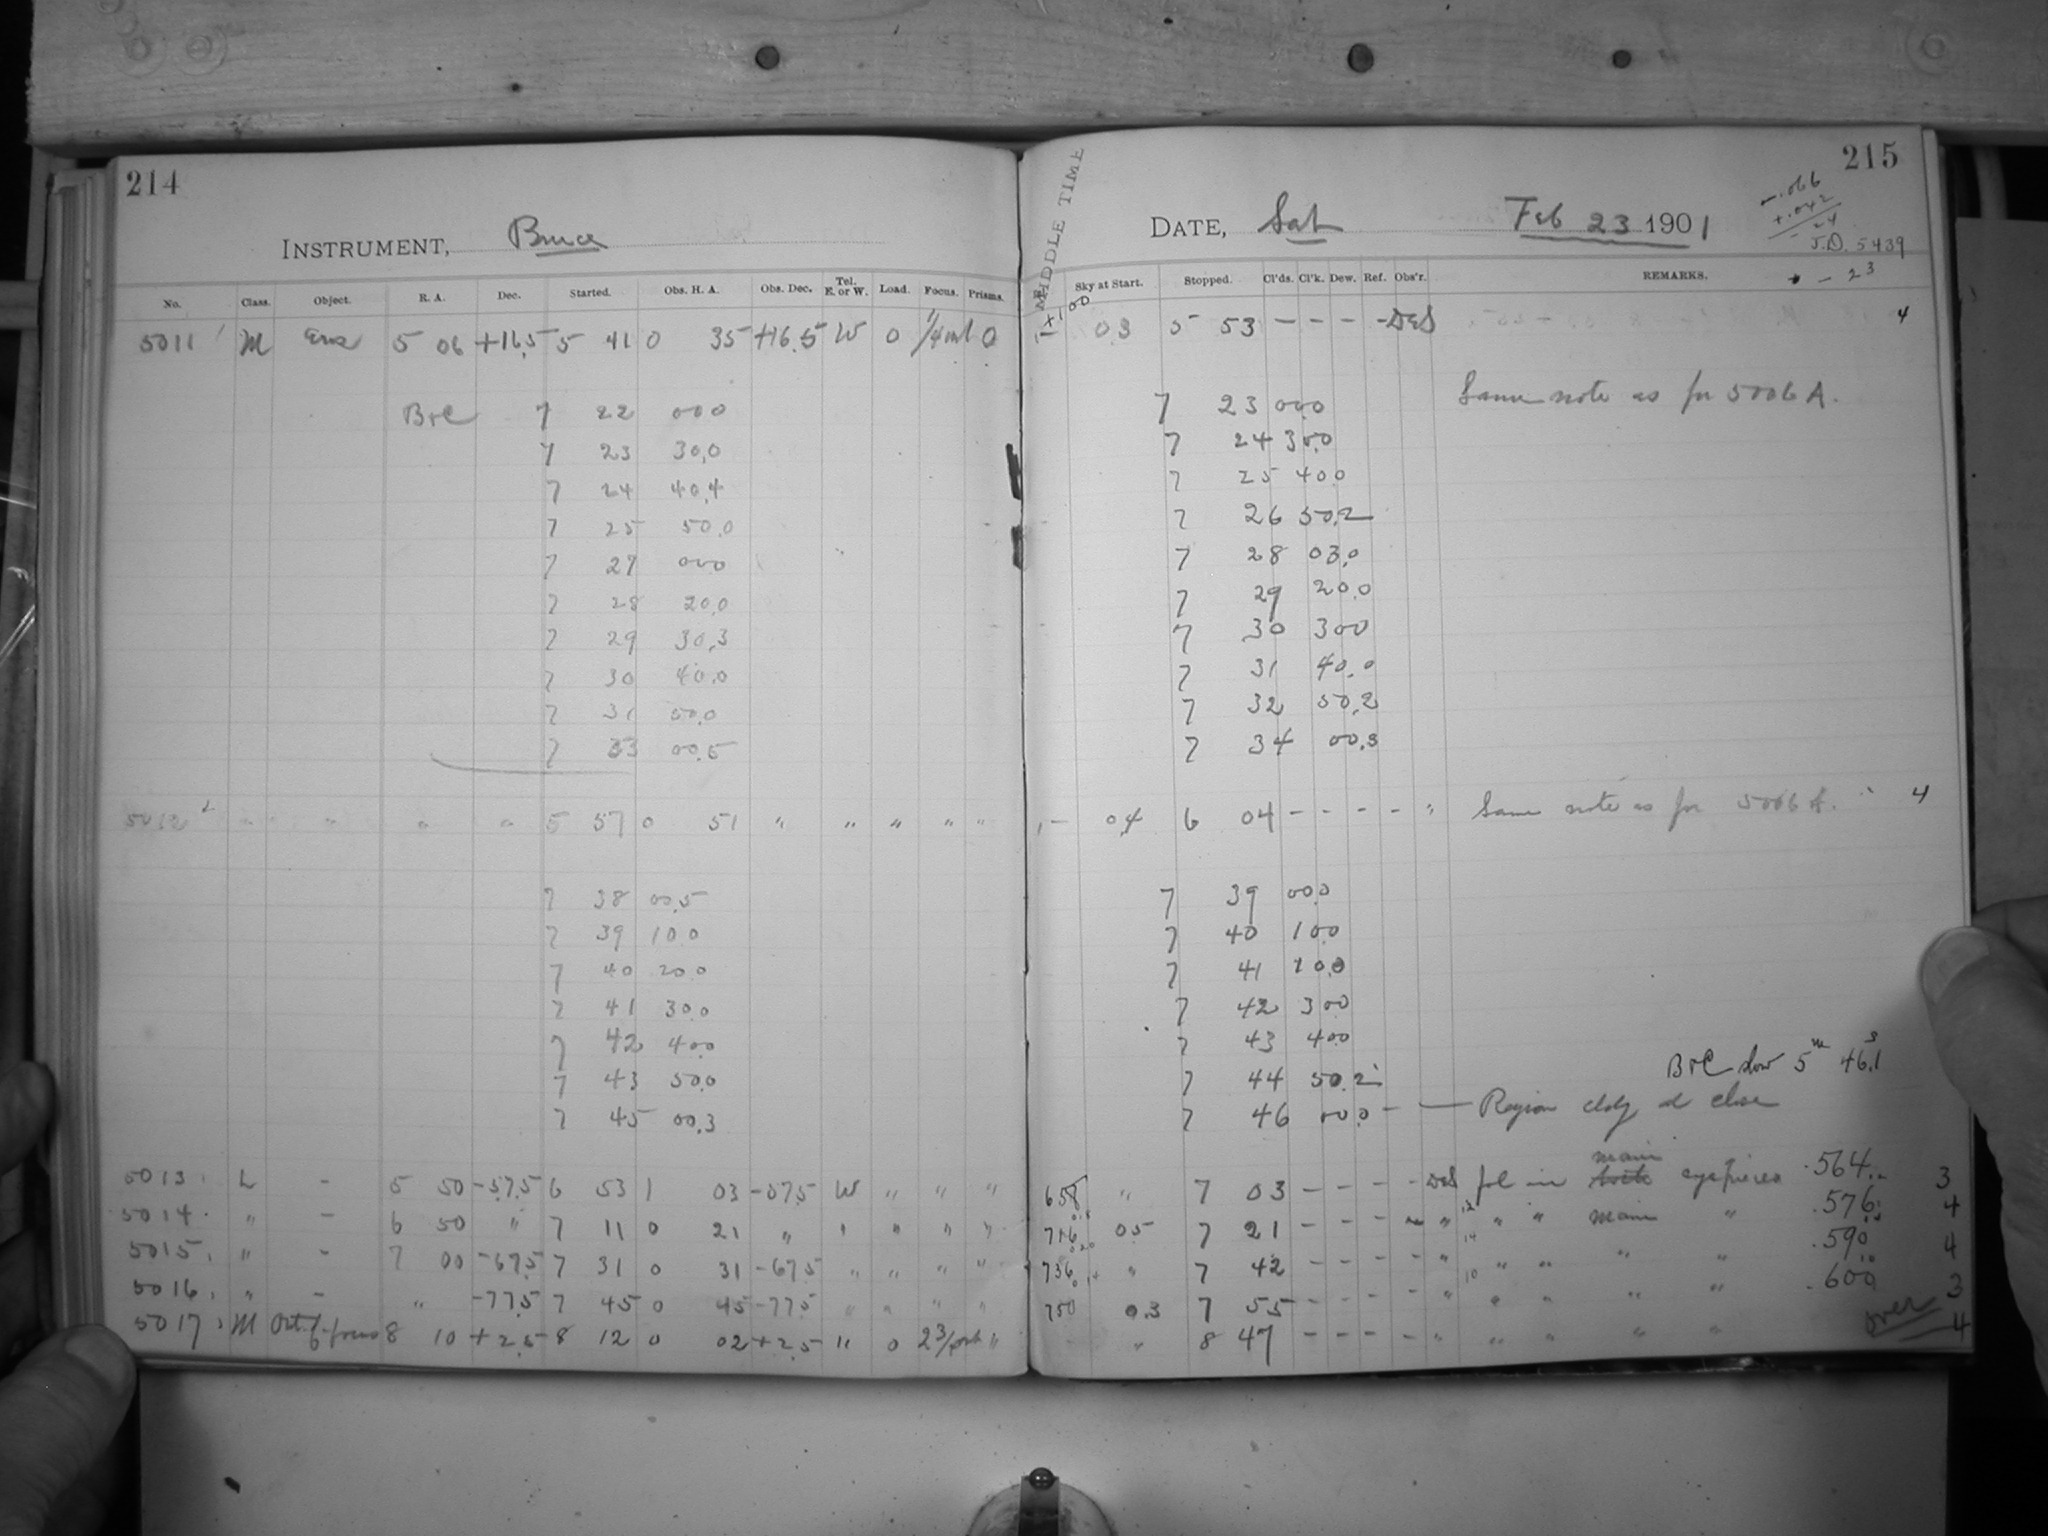 214
INSTRUMENT, Bruce
No. Class. Object. R. A. Dec. Started. Obs. H. A. Obs. Dec. Tel. E. or W. Load. Focus. Prisms.
5011 M Eros 5 06 +16.5 5 41 0 35 +16.5 W 0 0
B&C 7 22 00.0
7 23 30.0
7 24 40.4
7 25 50.0
7 27 00.0
7 28 20.0
7 29 30.3
7 30 40.0
7 31 50.0
7 33 00.5
5012 " " " " 5 57 0 51 " " " " "
7 38 00.5
7 39 10.0
7 40 20.0
7 41 30.0
7 42 40.0
7 43 50.0
7 45 00.3
5013 L - 5 50 -57.5 6 53 1 03 -57.5 W " " "
5014 " - 6 50 " 7 11 0 21 " " " " "
5015 " - 7 00 -67.5 7 31 0 31 -67.5 " " " "
5016 " - " -77.5 7 45 0 45 -77.5 " " " "
5017 M focus 8 10 +2.5 8 12 0 02 +2.5 " 0 "
215
MIDDLE TIME
DATE, Sat Feb 23 1901
-.066
+.042
-24
J.D. 5439
- 23
Sky at Start. Stopped. Cl'ds. Cl'k. Dew. Ref. Obs'r. REMARKS.
03 5 53 - - - - DES 4
7 23 00.0 Same note as for 5006 A.
7 24 30.0
7 25 40.0
7 26 50.2
7 28 03.0
7 29 20.0
7 30 30.0
7 31 40.0
7 32 50.2
7 34 00.3
04 6 04 - - - - " Same note as for 5006 A. 4
7 39 00.0
7 40 10.0
7 41 20.0
7 42 30.0
7 43 40.0
7 44 50.2 B&C slow 5m 46.1s
7 46 00.0 - — Region cldy at close
658 " 7 03 - - - - DES fol in main eyepieces .564 3
716 05 7 21 - - - " " " main " .576 4
736 " 7 42 - - - - " " " " " .590 4
750 0.3 7 55 - - - - " " " " " .600 3
" 8 47 - - - - " " " " " over 4